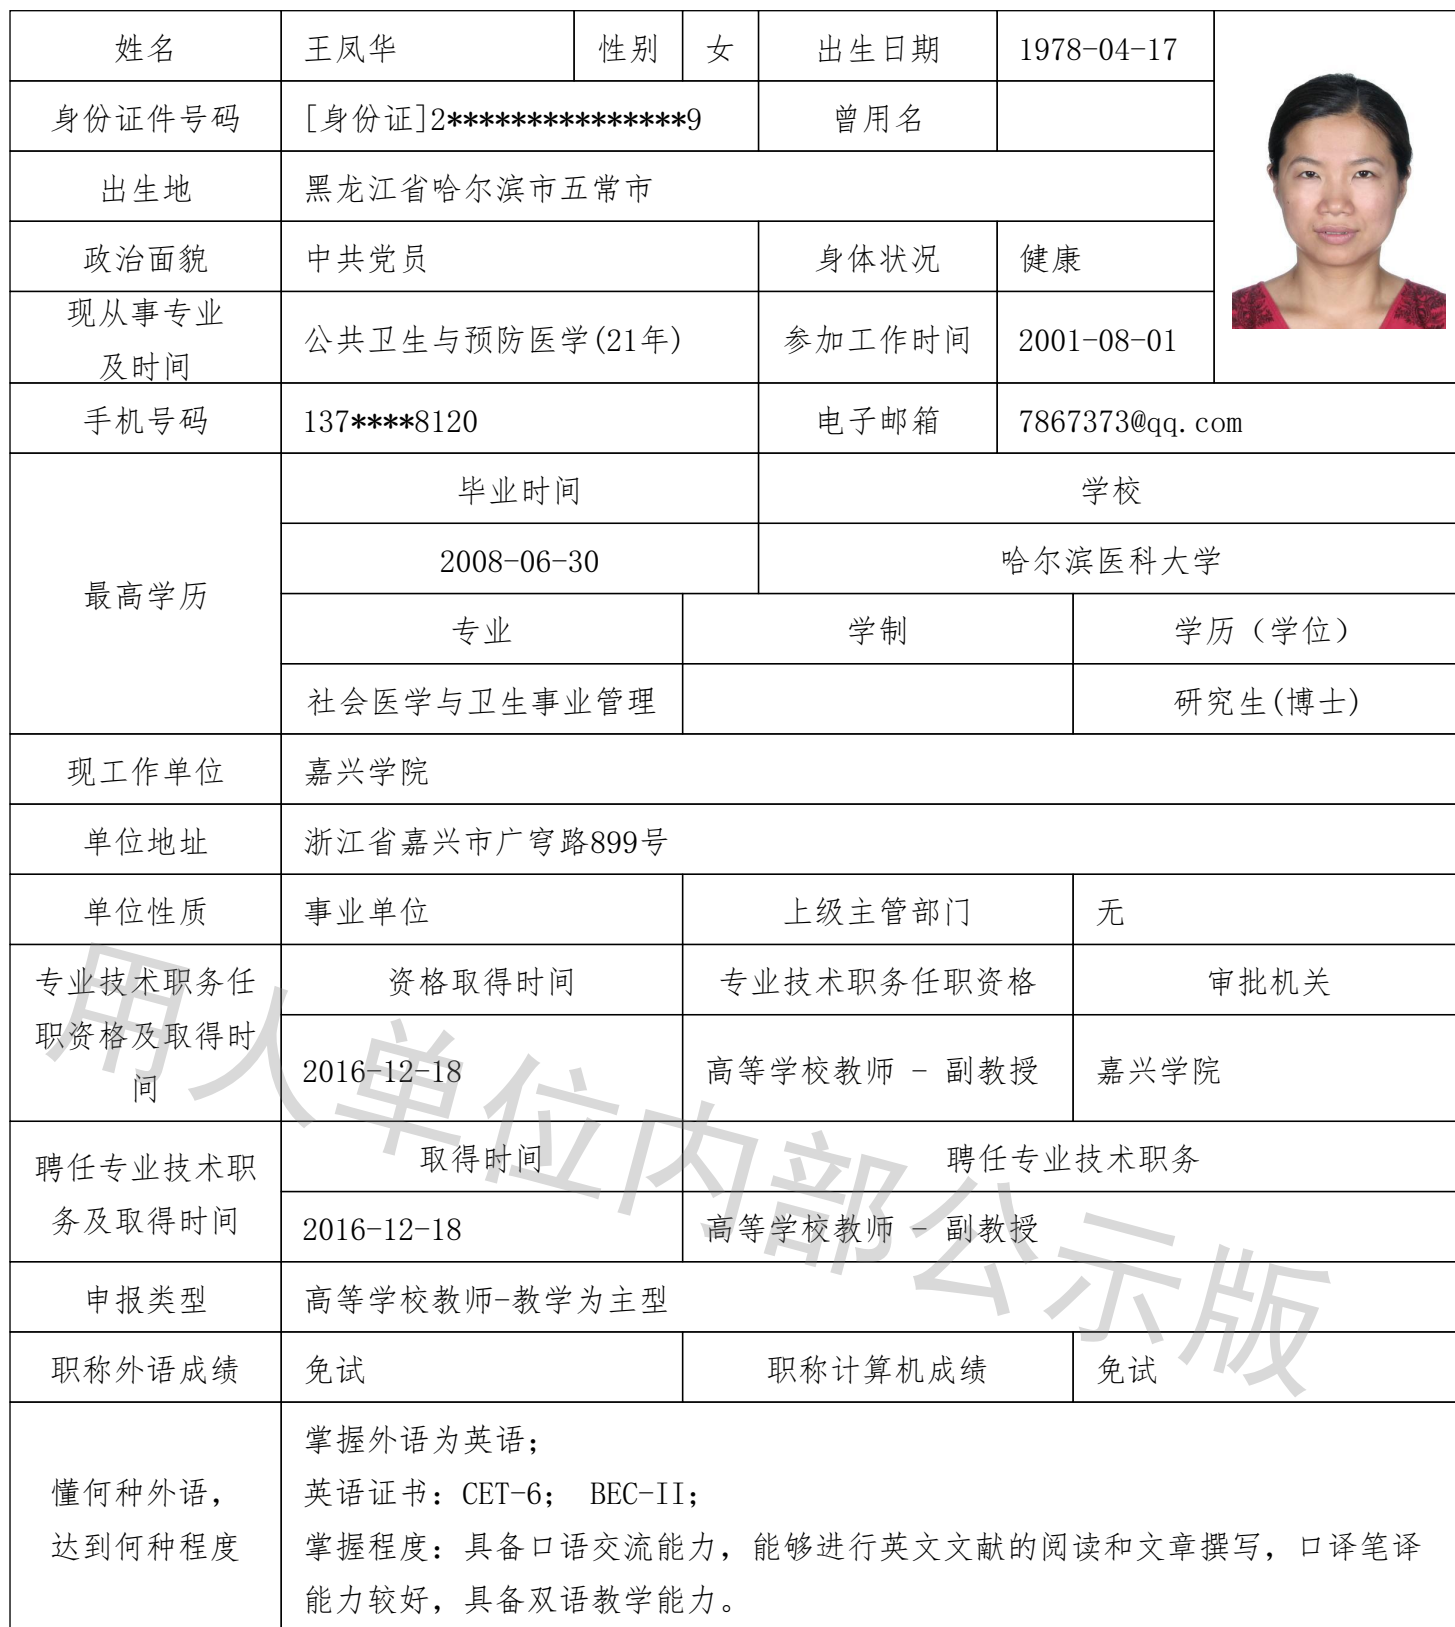 姓名 王凤华 性别 女 出生日期 1978-04-17
身份证件号码 [身份证]2***************9 曾用名
出生地 黑龙江省哈尔滨市五常市
政治面貌 中共党员 身体状况 健康
现从事专业
及时间 公共卫生与预防医学(21年) 参加工作时间 2001-08-01
手机号码 137****8120 电子邮箱 7867373@qq.com
最高学历
毕业时间 学校
2008-06-30 哈尔滨医科大学
专业 学制 学历（学位）
社会医学与卫生事业管理 研究生(博士)
现工作单位 嘉兴学院
单位地址 浙江省嘉兴市广穹路899号
单位性质 事业单位 上级主管部门 无
专业技术职务任
职资格及取得时
间
资格取得时间 专业技术职务任职资格 审批机关
2016-12-18 高等学校教师 - 副教授 嘉兴学院
聘任专业技术职
务及取得时间
取得时间 聘任专业技术职务
2016-12-18 高等学校教师 - 副教授
申报类型 高等学校教师-教学为主型
职称外语成绩 免试 职称计算机成绩 免试
懂何种外语，
达到何种程度
掌握外语为英语；
英语证书：CET-6； BEC-II；
掌握程度：具备口语交流能力，能够进行英文文献的阅读和文章撰写，口译笔译
能力较好，具备双语教学能力。
用人单位内部公示版